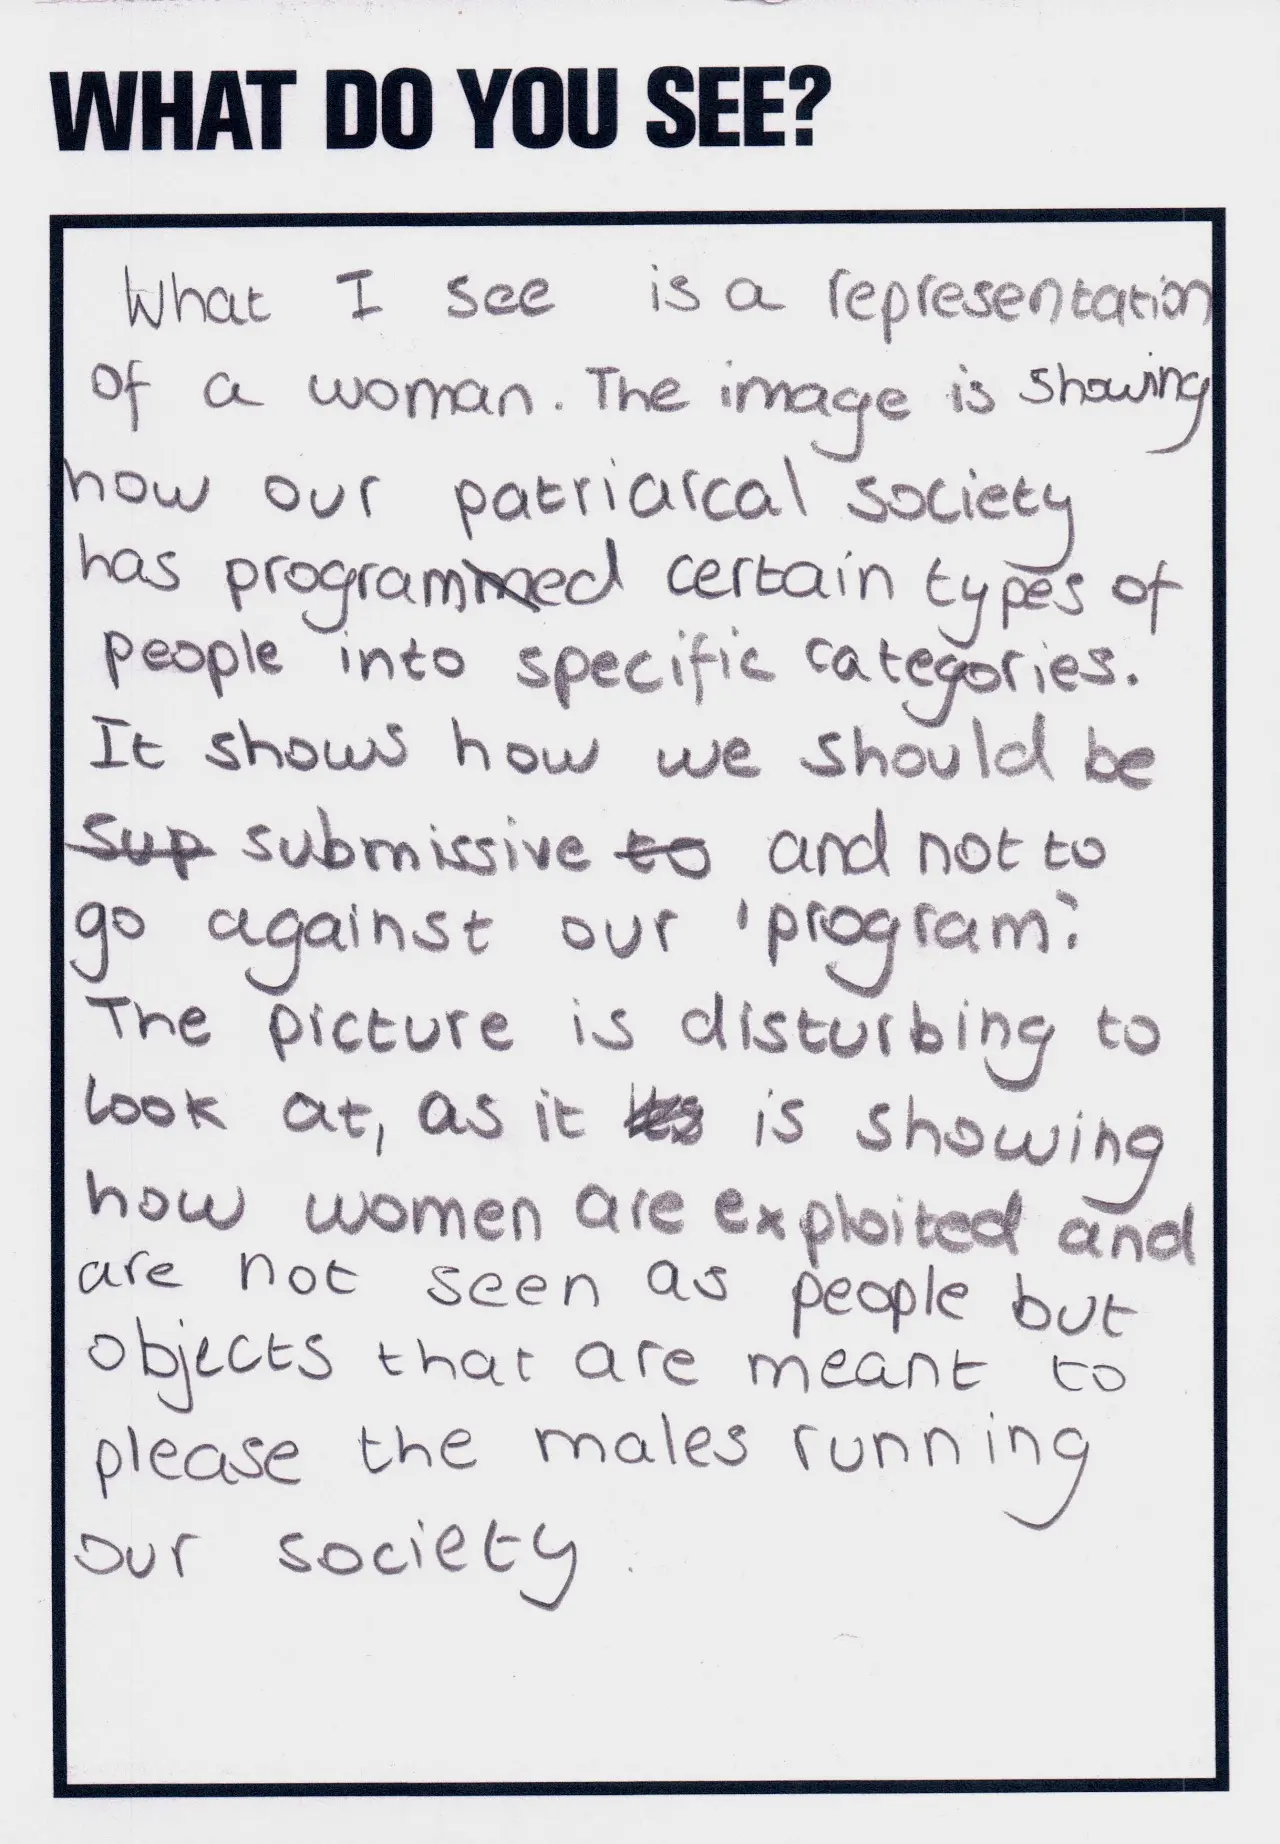 WHAT DO YOU SEE?
What I see is a representation
of a woman. The image is showing
how our patriarcal society
has programmed certain types of
people into specific categories.
It shows how we should be
sup submissive to and not to
go against our 'program'.
The picture is disturbing to
look at, as it is showing
how women are exploited and
are not seen as people but
objects that are meant to
please the males running
our society.